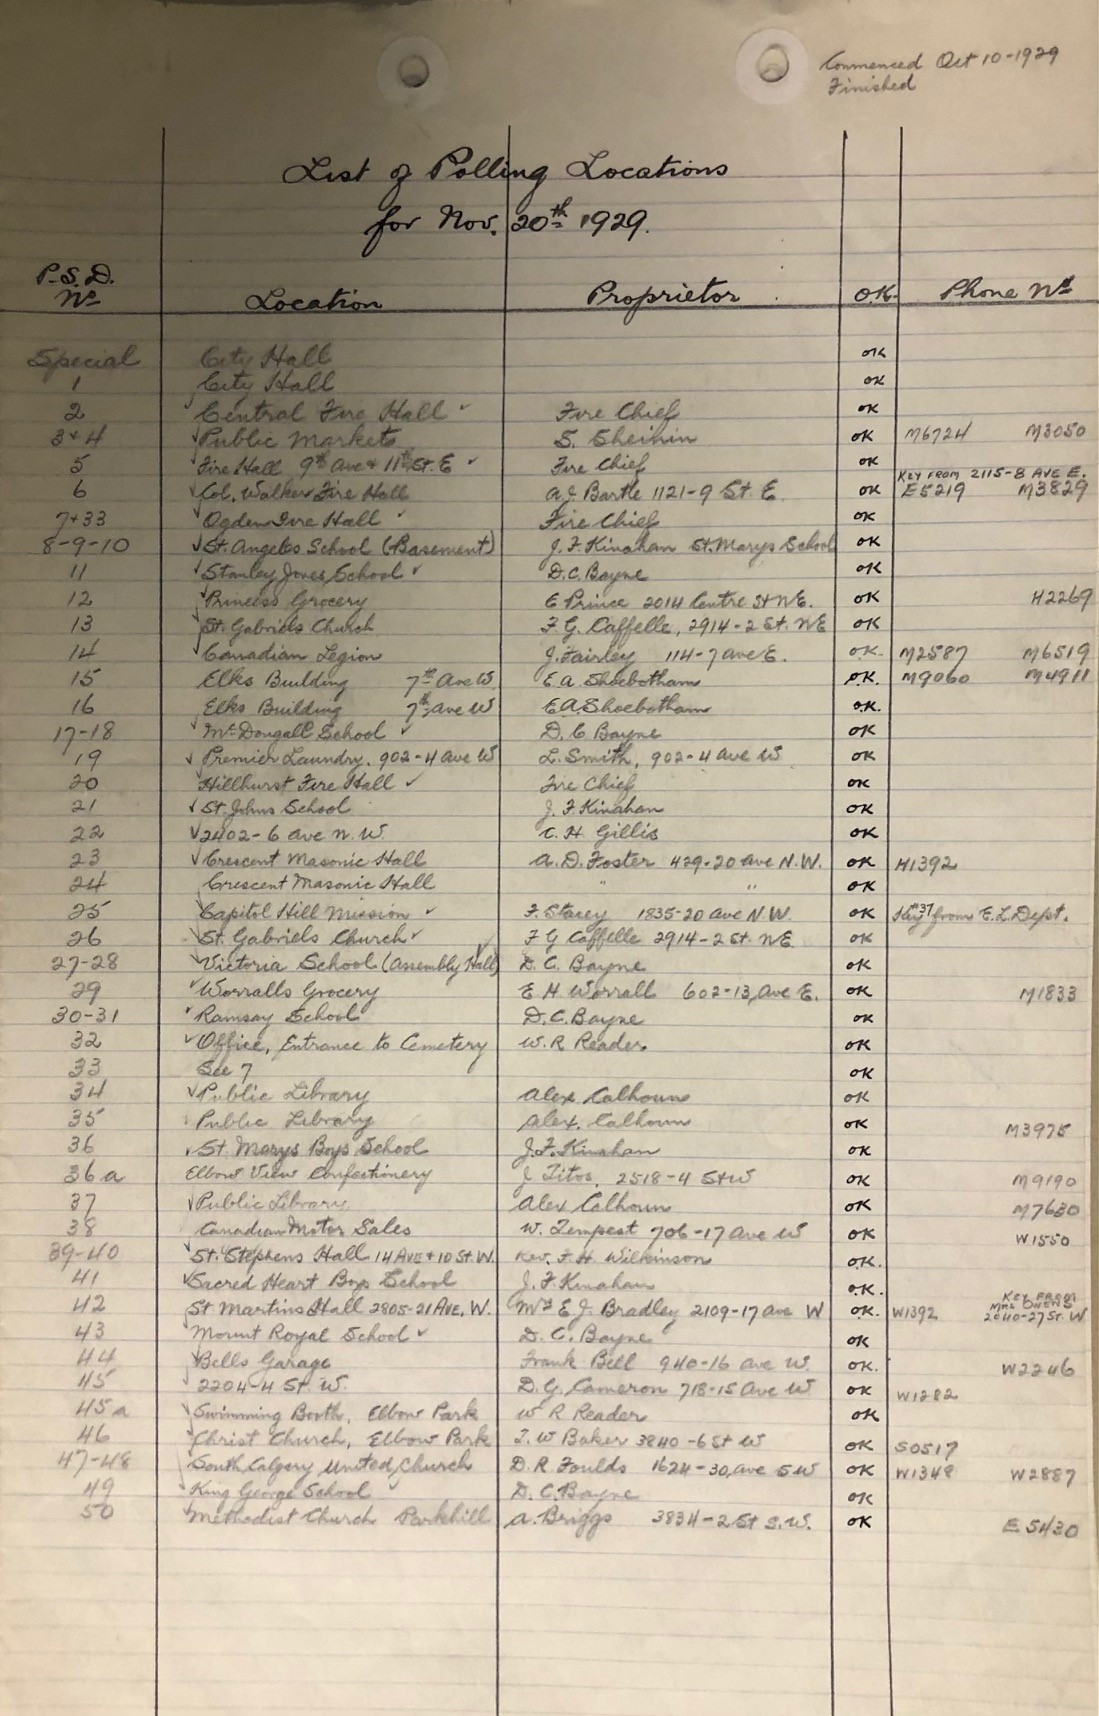 Commenced Oct 10-1929
Finished
List of Polling Locations
for Nov. 20th 1929.
P.S.D. No Location Proprietor O.K. Phone No
Special City Hall OK
1 City Hall OK
2 Central Fire Hall ✓ Fire Chief OK
3+4 Public Markets S. Sheinin OK M6724 M3050
5 Fire Hall 9th Ave + 11th St. E ✓ Fire Chief OK
KEY FROM 2115-8 AVE E.
6 Col. Walker Fire Hall A.J. Bartle 1121-9 St. E OK E5219 M3829
7+33 Ogden Fire Hall ✓ Fire Chief OK
8-9-10 ✓ St. Angelas School (Basement) J. F. Kinahan St. Marys School OK
11 ✓ Stanley Jones School ✓ D.C. Bayne OK
12 Princess Grocery E Prince 2014 Centre St N.E. OK H2269
13 St. Gabriels Church F. G. Caffelle, 2914-2 St. NE OK
14 ✓ Canadian Legion J. Fairley 114-7 ave E. OK. M2587 M6519
15 Elks Building 7th Ave W. E.A. Shoebotham OK. M9060 M4911
16 Elks Building 7th ave W E.A. Shoebotham OK.
17-18 ✓ McDougall School ✓ D. C. Bayne OK
19 ✓ Premier Laundry. 902-4 ave W L. Smith, 902-4 Ave W OK
20 Hillhurst Fire Hall ✓ Fire Chief OK
21 ✓ St. Johns School J. F. Kinahan OK
22 ✓ 2402-6 ave N.W. C. H. Gillis OK
23 ✓ Crescent Masonic Hall A. D. Foster 429-20 ave N.W. OK H1392
24 Crescent Masonic Hall " " OK
25 Capitol Hill Mission ✓ F. Stacey 1835-20 ave N.W. OK Key #37 from E.L. Dept.
26 St. Gabriels Church ✓ F G Caffelle 2914-2 St. NE OK
27-28 Victoria School (Assembly Hall) D. C. Bayne OK
29 ✓ Worralls Grocery E H Worrall 602-13 Ave E. OK M1833
30-31 Ramsay School D.C. Bayne OK
32 ✓ Office, Entrance to Cemetery W. R Reader OK
33 See 7 OK
34 ✓ Public Library Alex Calhoun OK
35 Public Library Alex. Calhoun OK M3975
36 ✓ St. Marys Boys School J. F. Kinahan OK
36a Elbow View Confectionery J Titos. 2518-4 St W OK M9190
37 ✓ Public Library Alex Calhoun OK M7630
38 Canadian Motor Sales W. Tempest 706-17 ave W OK W1550
39-40 ✓ St. Stephens Hall 14 AVE + 10 ST. W. Rev. F. H. Wilkinson OK.
41 ✓ Sacred Heart Boys School J. F. Kinahan OK.
KEY FROM MRS. OWENS
42 St Martins Hall 2805-21 AVE. W. Mrs E J. Bradley 2109-17 ave W OK. W1392 2040-27 ST. W
43 Mount Royal School ✓ D. C. Bayne OK
44 Bells Garage Frank Bell 940-16 ave W. OK. W2246
45 2204-4 St. W. D. G. Cameron 718-15 Ave W OK W1282
45a Swimming Booth, Elbow Park W R Reader OK
46 Christ Church, Elbow Park T. W Baker 3840-6 St W OK S0517
47-48 South Calgary United Church D. R Foulds 1624-30 ave S W OK W1348 W2887
49 King George School ✓ D. C. Bayne OK
50 Methodist Church Parkhill A. Briggs 3834-2 St S.W. OK E5430